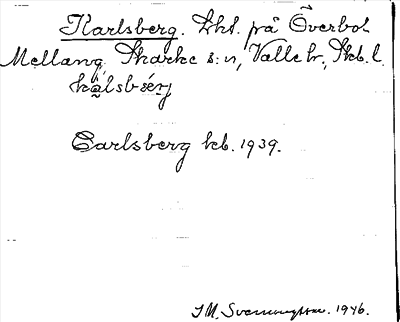 Karlsberg. Lht. på Överbol
Mellang. Skarke s:n, Valle hr, Skb. l.
Carlsberg kb. 1939.
J.M. 1946.